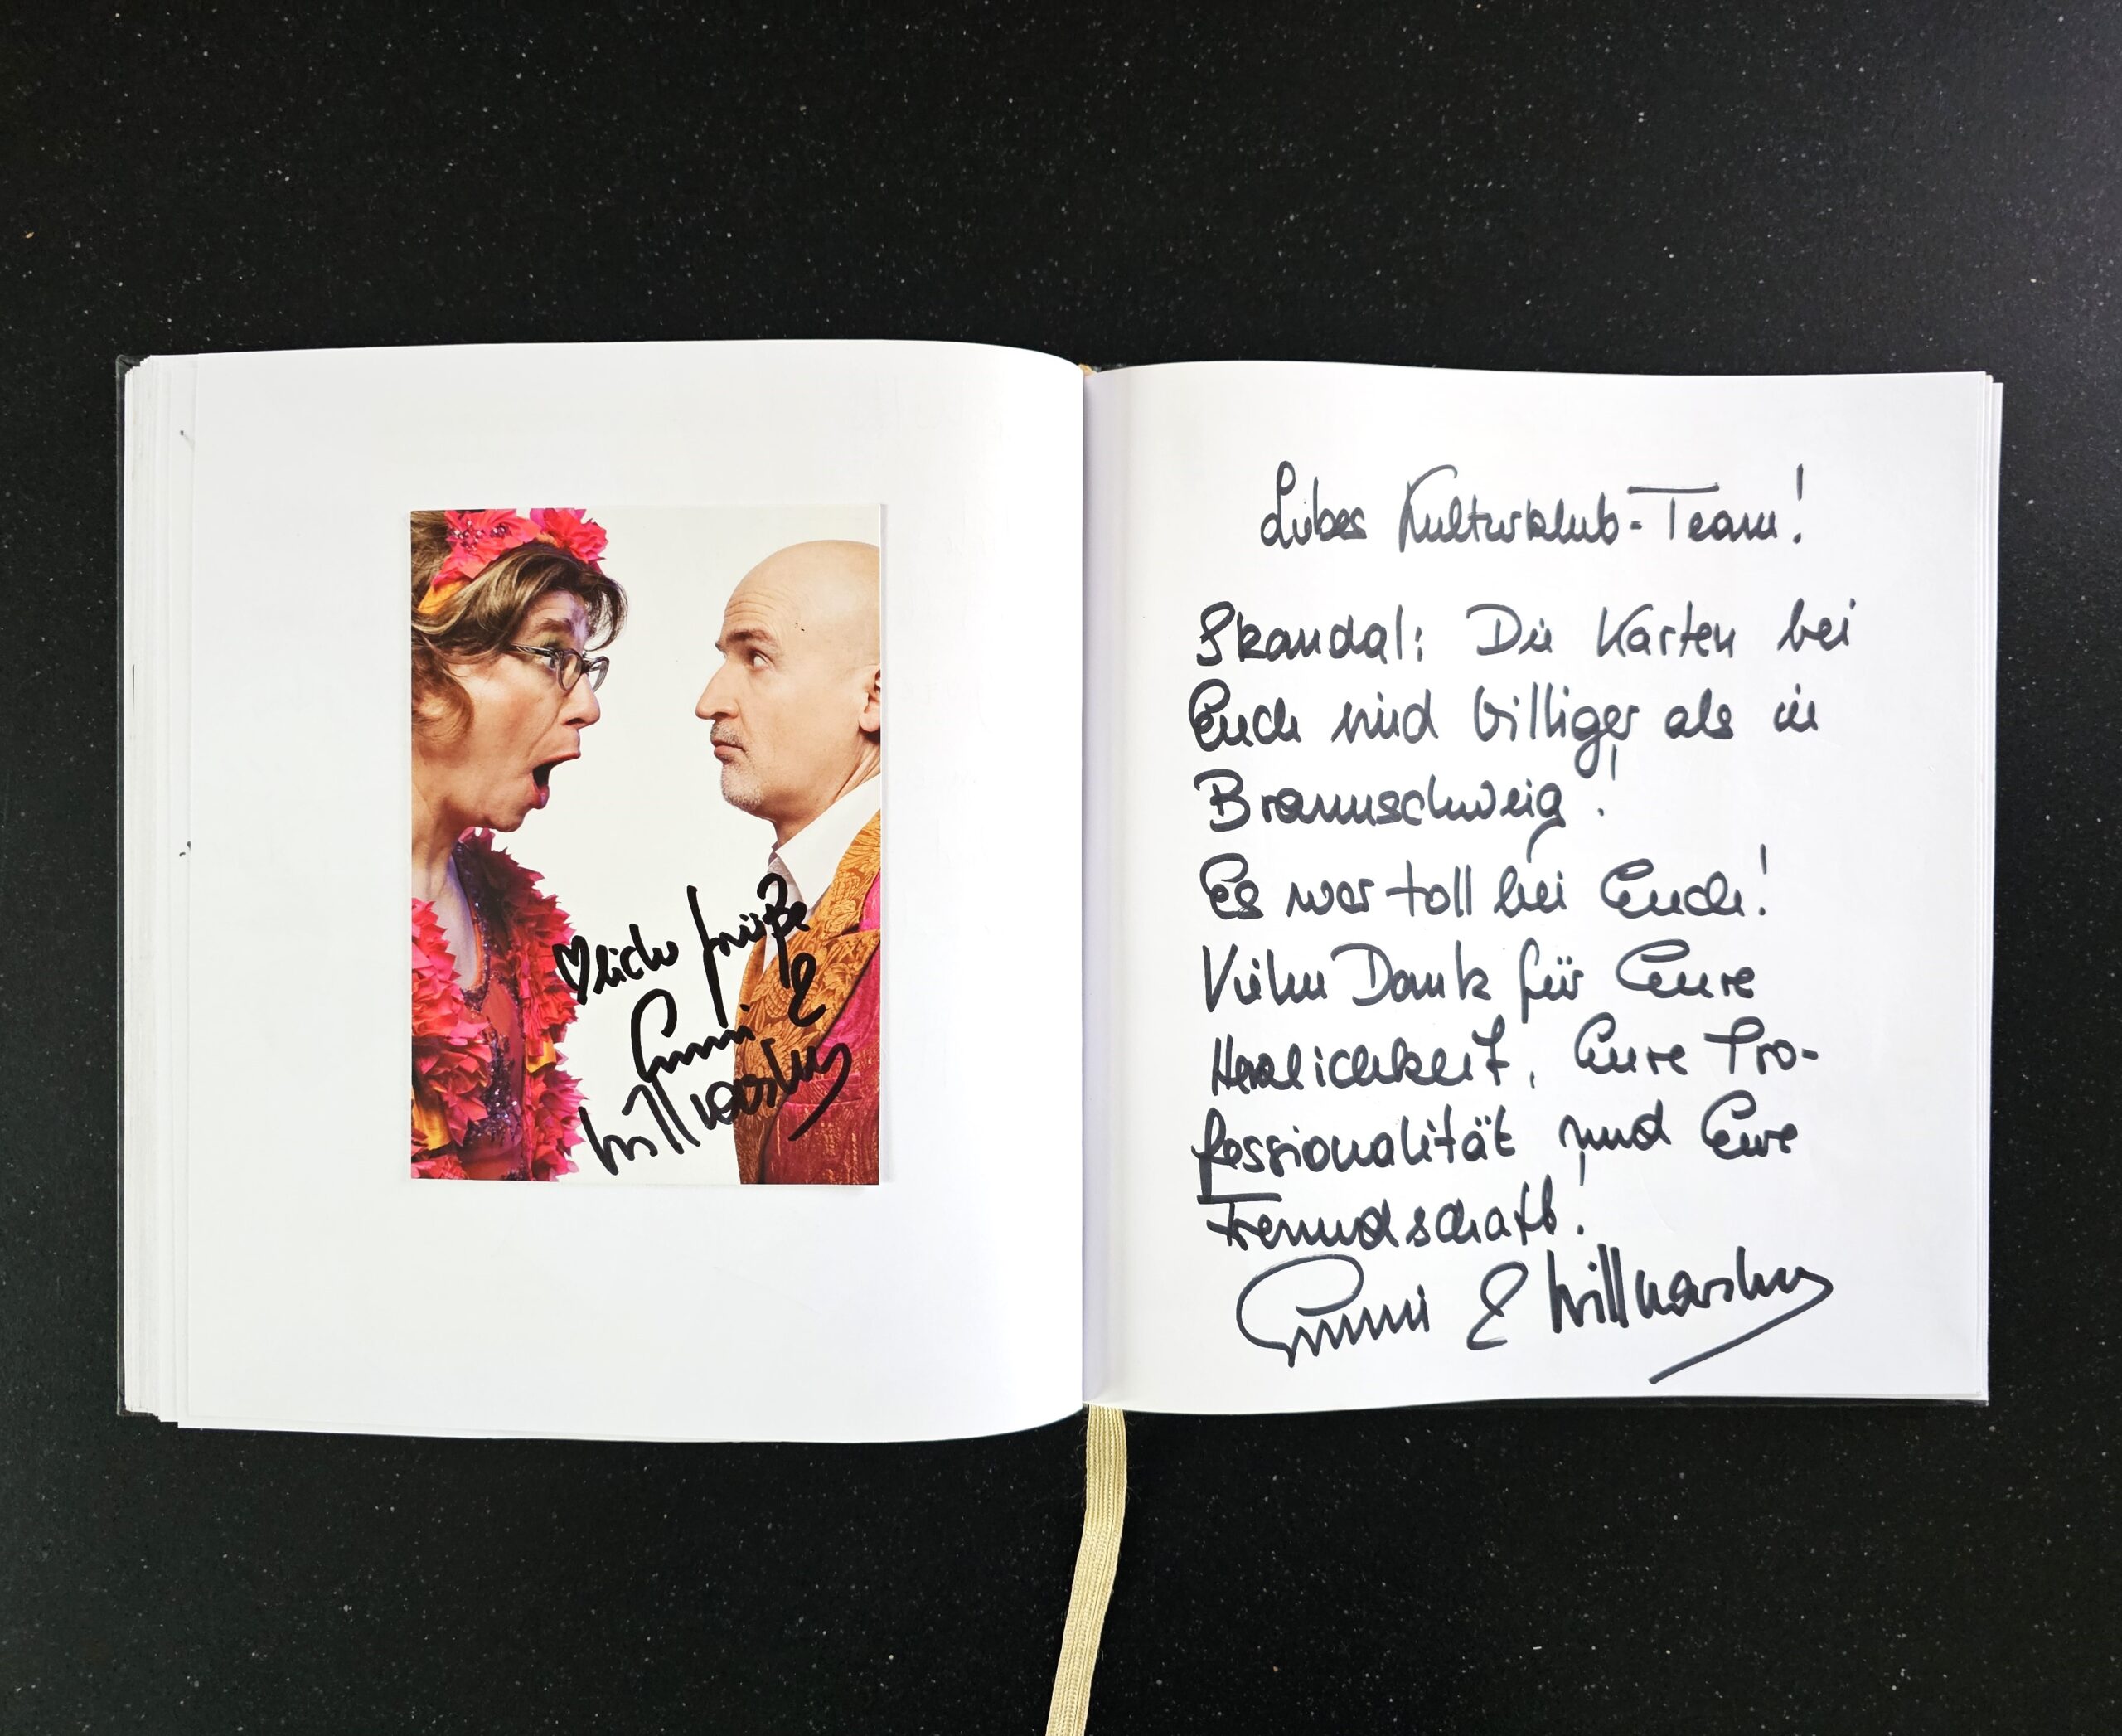 ♡liche Grüße
Emmi &
Willnowsky
Liebes Kulturklub-Team!
Skandal: Die Karten bei
Euch sind billiger als in
Braunschweig!
Es war toll bei Euch!
Vielen Dank für Eure
Herzlichkeit, Eure Pro-
fessionalität und Eure
Freundschaft!
Emmi & Willnowsky